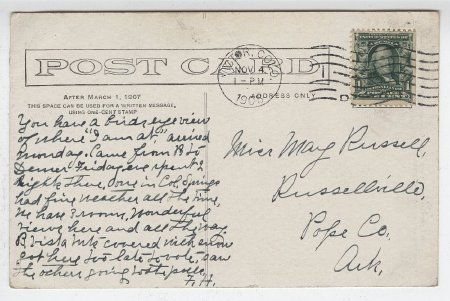 POST CARD
NOV 4
1-PM
1908
AFTER MARCH 1, 1907
THIS SPACE CAN BE USED FOR A WRITTEN MESSAGE,
USING ONE-CENT STAMP
ADDRESS ONLY
You have a birdseye view
of where "I am at" arrived
Monday. Came from
Denver Friday eve spent 2
nights there, one in Col. Springs
had fine weather all the time,
We have 3 rooms, Wonderful
views here and all the way.
B. Vista Mts covered with snow
got here too late to vote, saw
the others going to the polls,
F. H.
Miss May Russell,
Russellville,
Pope Co.
Ark.